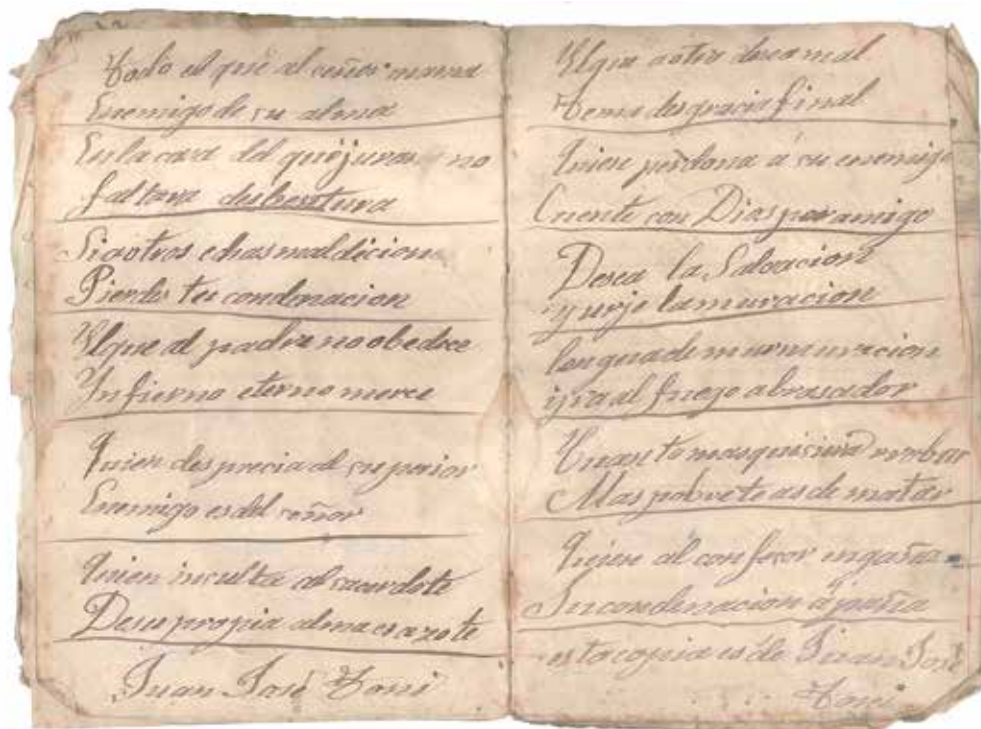 Todo el que al señor
Enemigo de su alma
En la casa del que jura no
faltara
Si a otros echas maldicion
Pierdes tu condenacion
El que al padre no obedece
Infierno eterno merce
Quien desprecia al superior
Enemigo es del señor
Quien insulta al sacerdote
De su propia alma es azote
Juan José Toni
El que a otro desea mal
Tema desgracia final
Quien perdona á su enemigo
Cuente con Dios por amigo
Desea la Salvacion
y
lengua de murmuracion
ira al fuego abrasador
Cuanto mas quisiera
Mas pobre te as de
Quien al confesor engaña
Su condenacion apaña
esta copia es de Juan José
Toni